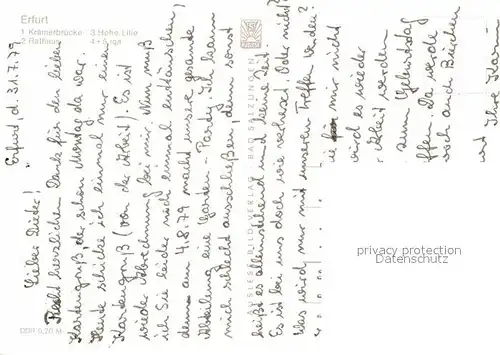 Erfurt
1 Krämerbrücke 3 Hohe Lilie
2 Rathaus 4+5 ega
Erfurt, d. 31.7.79
Lieber Dieter!
Recht herzlichen Dank für den lieben
Kartengruß, der schon Montag da war.
Heute schicke ich einmal nur einen
Kartengruß (von der Arbeit). Es ist
wieder Abrechnung bei mir. Nun muß
ich Sie leider noch einmal enttäuschen,
denn am 4.8.79 macht unsere gesamte
Abteilung eine Garten-Party. Ich kann
mich schlecht ausschließen, denn sonst
heißt es alleinstehend und keine Zeit.
Es ist bei uns doch wie verhext. Oder nicht?
Was wird nur mit unserem Treffen werden?
mir nicht
wird es wieder
werden
zum Geburtstag
ffen. Da werde
noch auch Bierchen
Ihre Karin
AUSLESE-BILD-VERLAG BAD SALZUNGEN
DDR 0,20 M
privacy protection
Datenschutz